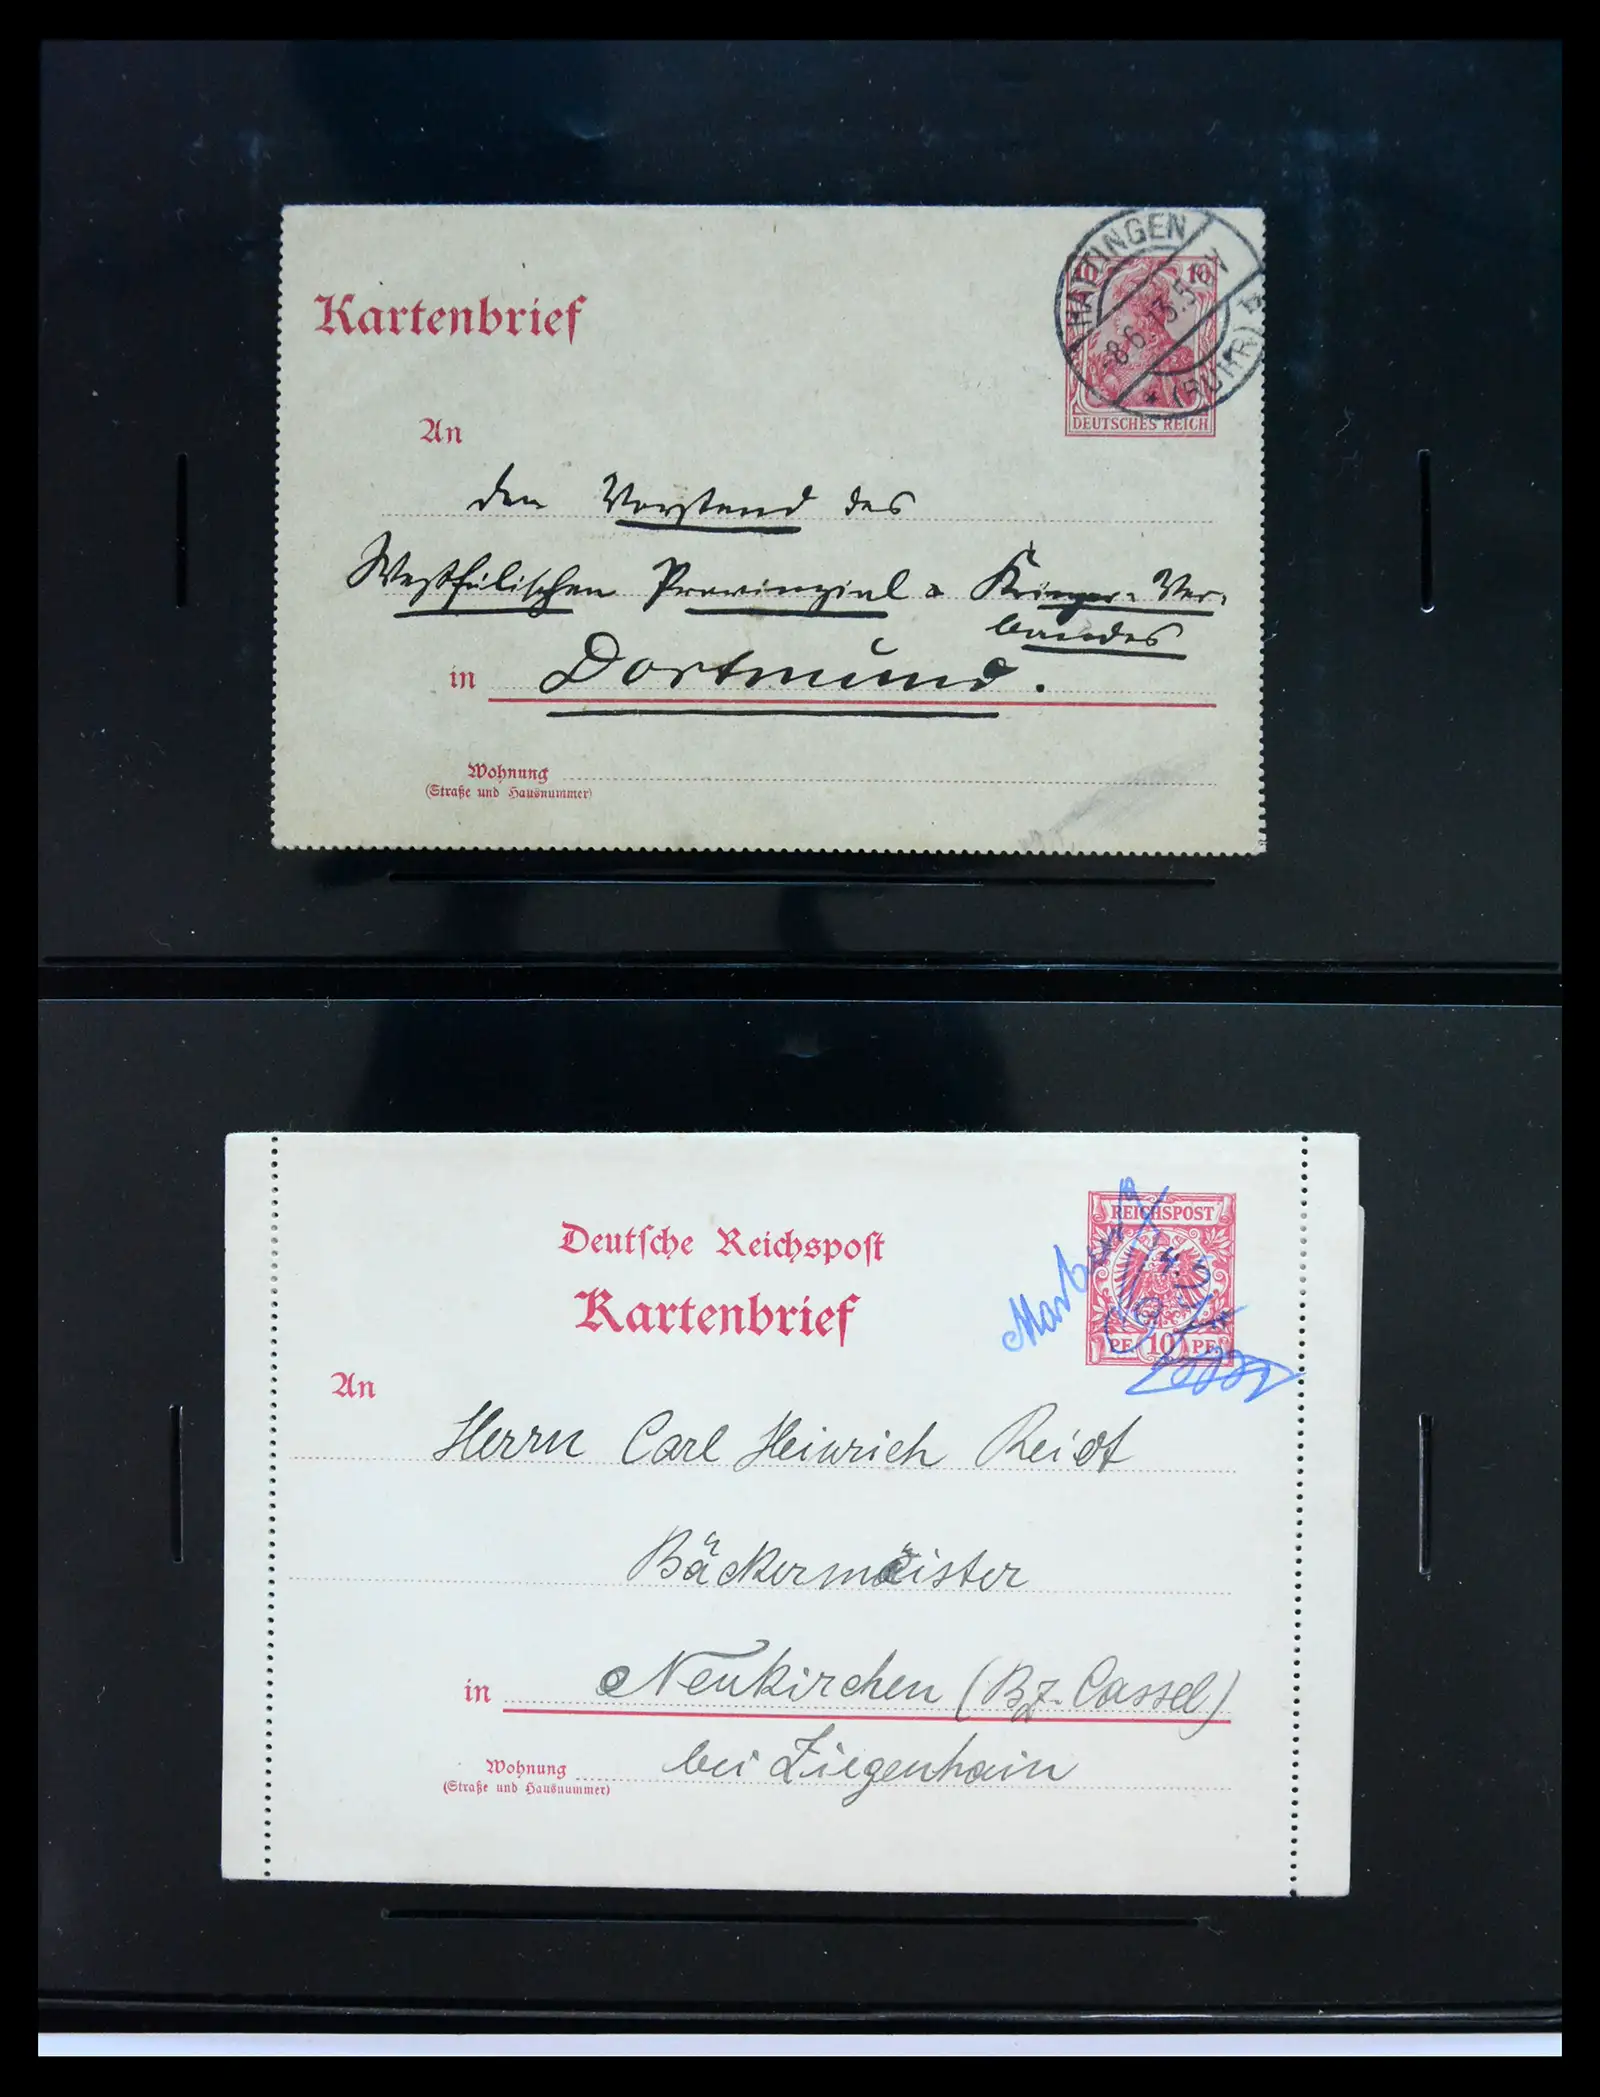 Kartenbrief
HATTINGEN
(RUHR)
-8.6.13.5-6N
10 10
DEUTSCHES REICH
An
den Vorstand des
Westfälischen Provinzial-Krieger-Ver-
bandes
in Dortmund.
Wohnung
(Straße und Hausnummer)
Deutsche Reichspost
Kartenbrief
REICHSPOST
PF. 10 PF.
Marburg
An
Herrn Carl Heinrich Reidt
Bäckermeister
in Neukirchen (Bz. Cassel)
Wohnung bei Ziegenhain
(Straße und Hausnummer)